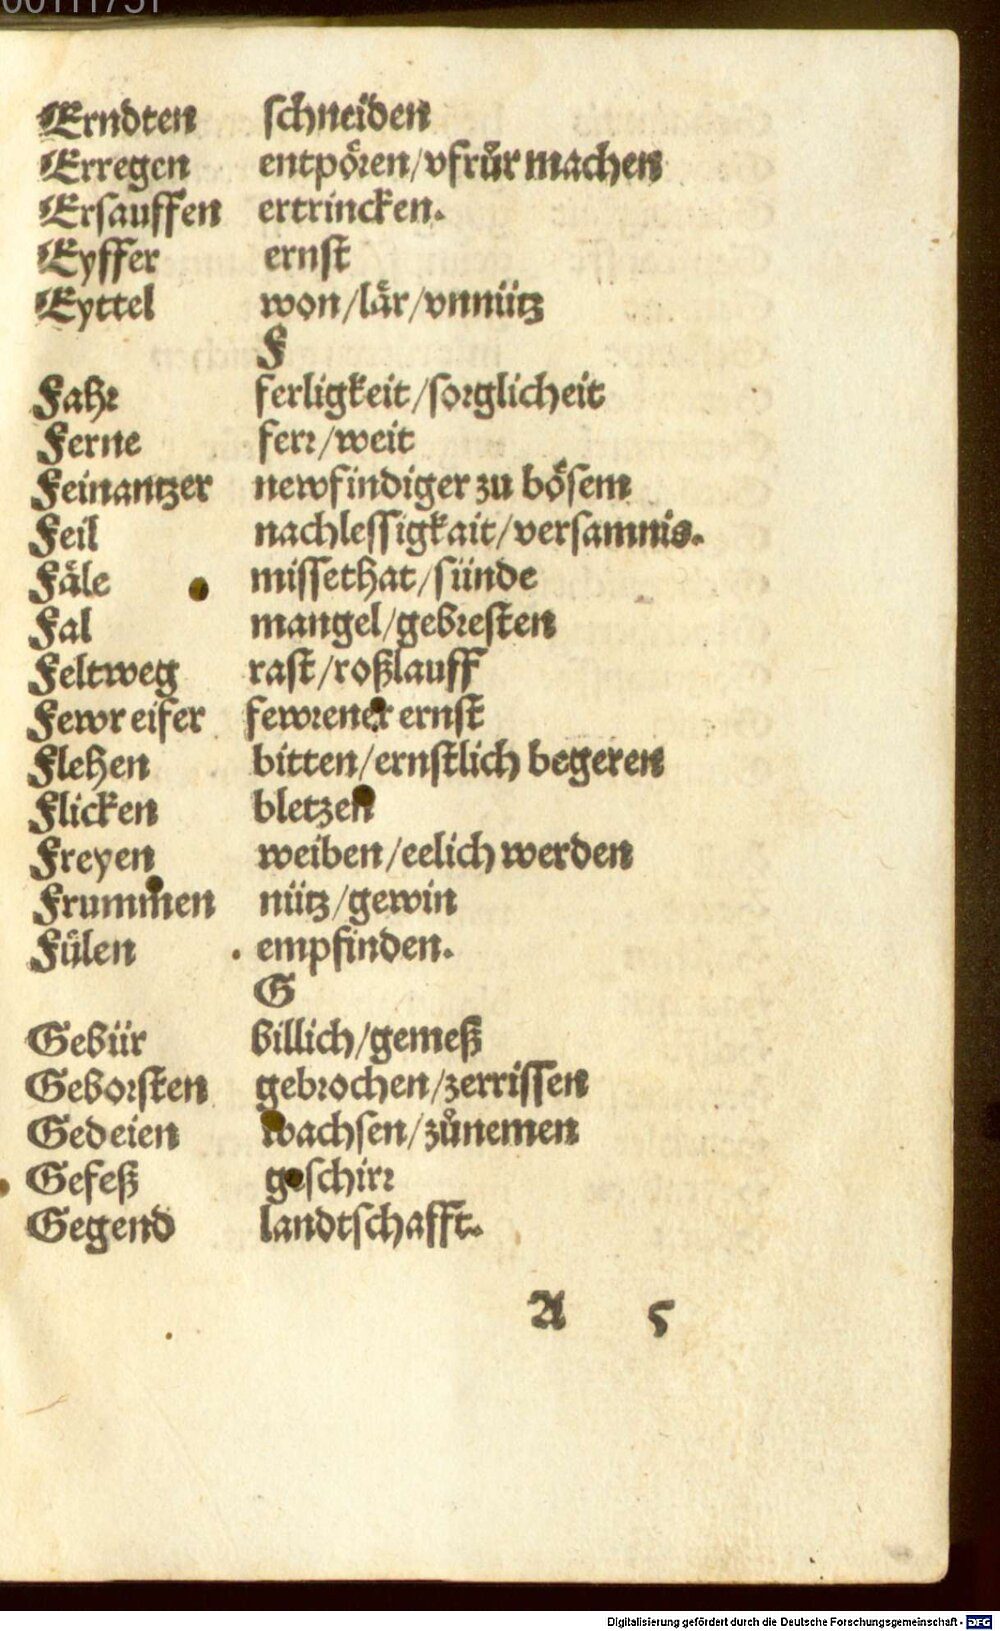 00111731
Erndten schneiden
Erregen entpoͤren/vfruͦr machen
Ersauffen ertrincken.
Eyffer ernst
Eyttel won/laͤr/vnnütz
F
Fahr ferligkeit/sorglicheit
Ferne ferr/weit
Feinantzer newfindiger zu boͤsem
Feil nachlessigkait/versamnis.
Faͤle missethat/sünde
Fal mangel/gebresten
Feltweg rast/roßlauff
Fewr eifer fewrener ernst
Flehen bitten/ernstlich begeren
Flicken bletzen
Freyen weiben/eelich werden
Frummen nütz/gewin
Fuͤlen empfinden.
G
Gebür billich/gemeß
Geborsten gebrochen/zerrissen
Gedeien wachsen/zuͦnemen
Gefeß geschirr
Gegend landtschafft.
A 5
Digitalisierung gefördert durch die Deutsche Forschungsgemeinschaft - DFG